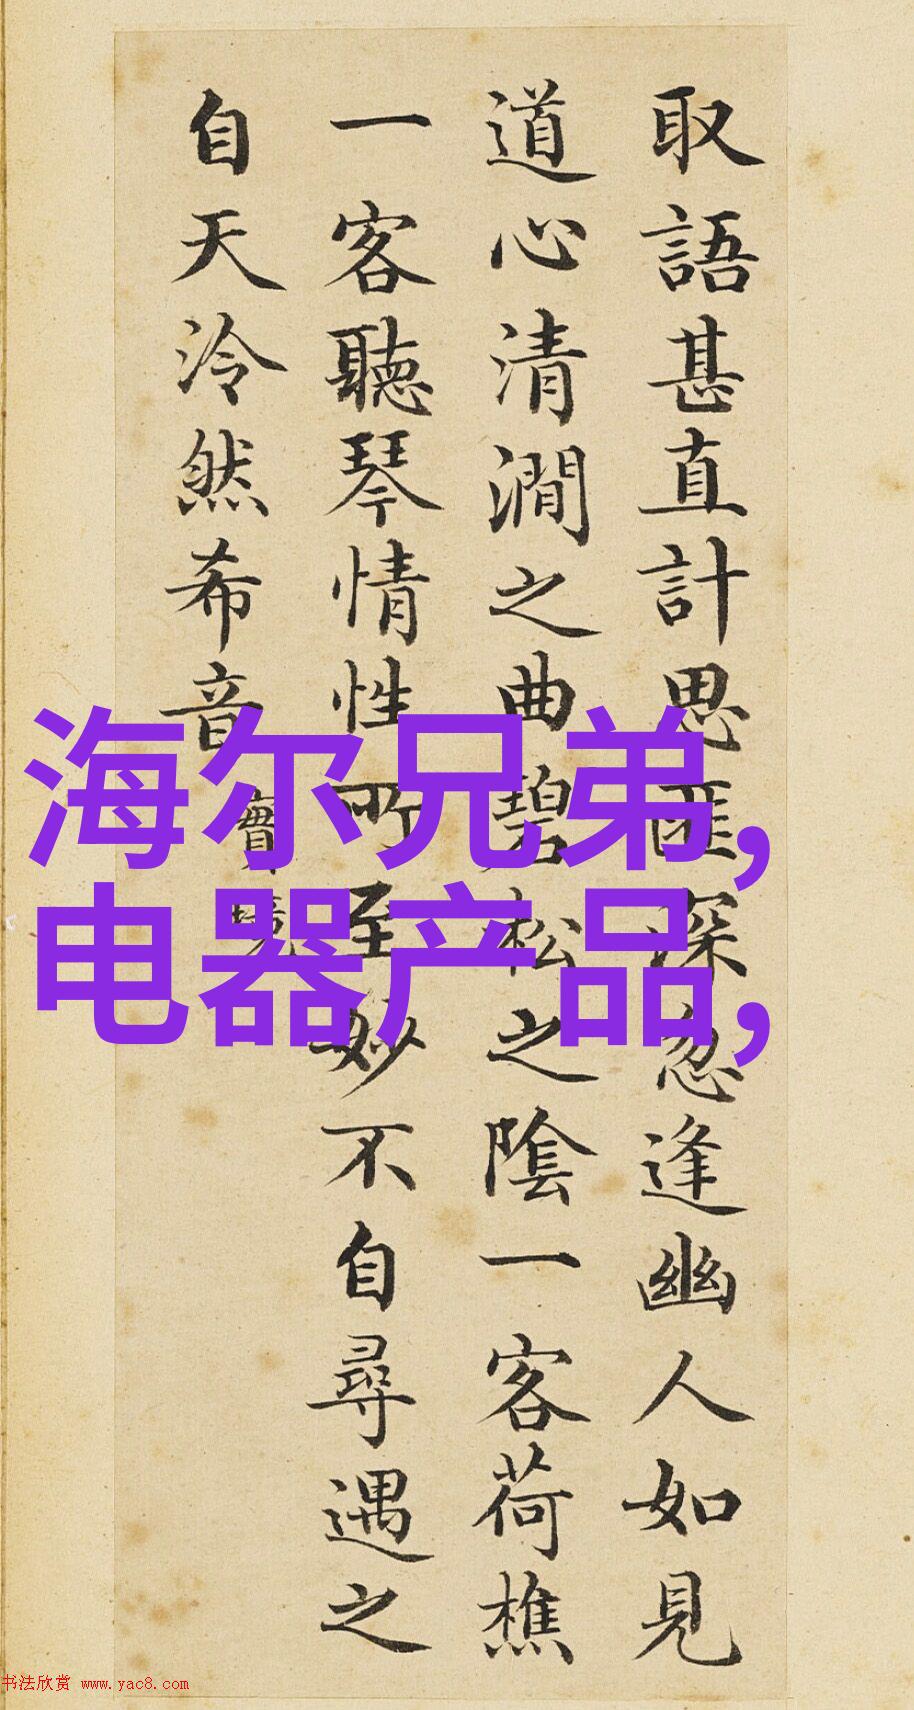 取語甚直計思匪深忽逢幽人如見
道心清澗之曲碧松之陰一客荷樵
一客聽琴情性所至妙不自尋遇之
自天泠然希音
實境
海尔兄弟,
电器产品,
书法欣赏 www.yac8.com